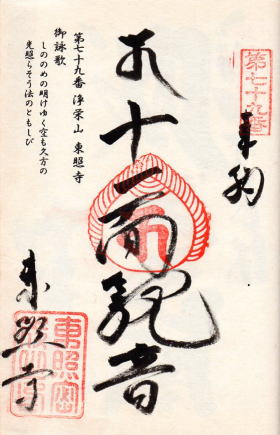 第七十九番
奉納
十一面観音
東照寺
東照寺
第七十九番 浄栄山 東照寺
御詠歌
しののめの明けゆく空も久方の
光照らそう法のともしび